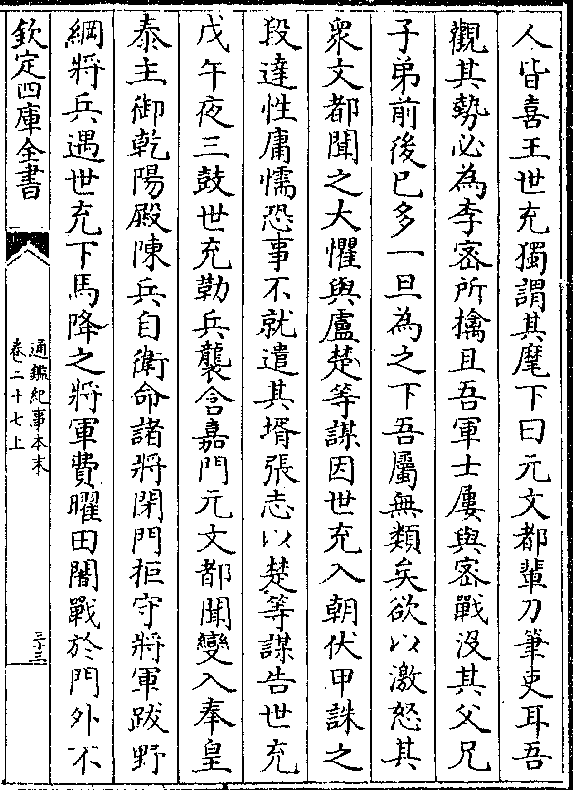 人皆喜王世充獨謂其麾下曰元文都輩刀筆吏耳吾
觀其勢必為李宻所擒且吾軍士屢與宻戰沒其父兄
子弟前後已多一旦為之下吾屬無類矣欲以激怒其
衆文都聞之大懼與盧楚等謀因世充入朝伏甲誅之
段達性庸懦恐事不就遣其壻張志以楚等謀告世充
戊午夜三鼓世充勒兵襲含嘉門元文都聞變入奉皇
泰主御乾陽殿陳兵自衛命諸將閉門拒守將軍跋野
綱將兵遇世充下馬降之將軍費曜田闍戰於門外不
欽定四庫全書
通鑑紀事本末
卷二十七上
三十三